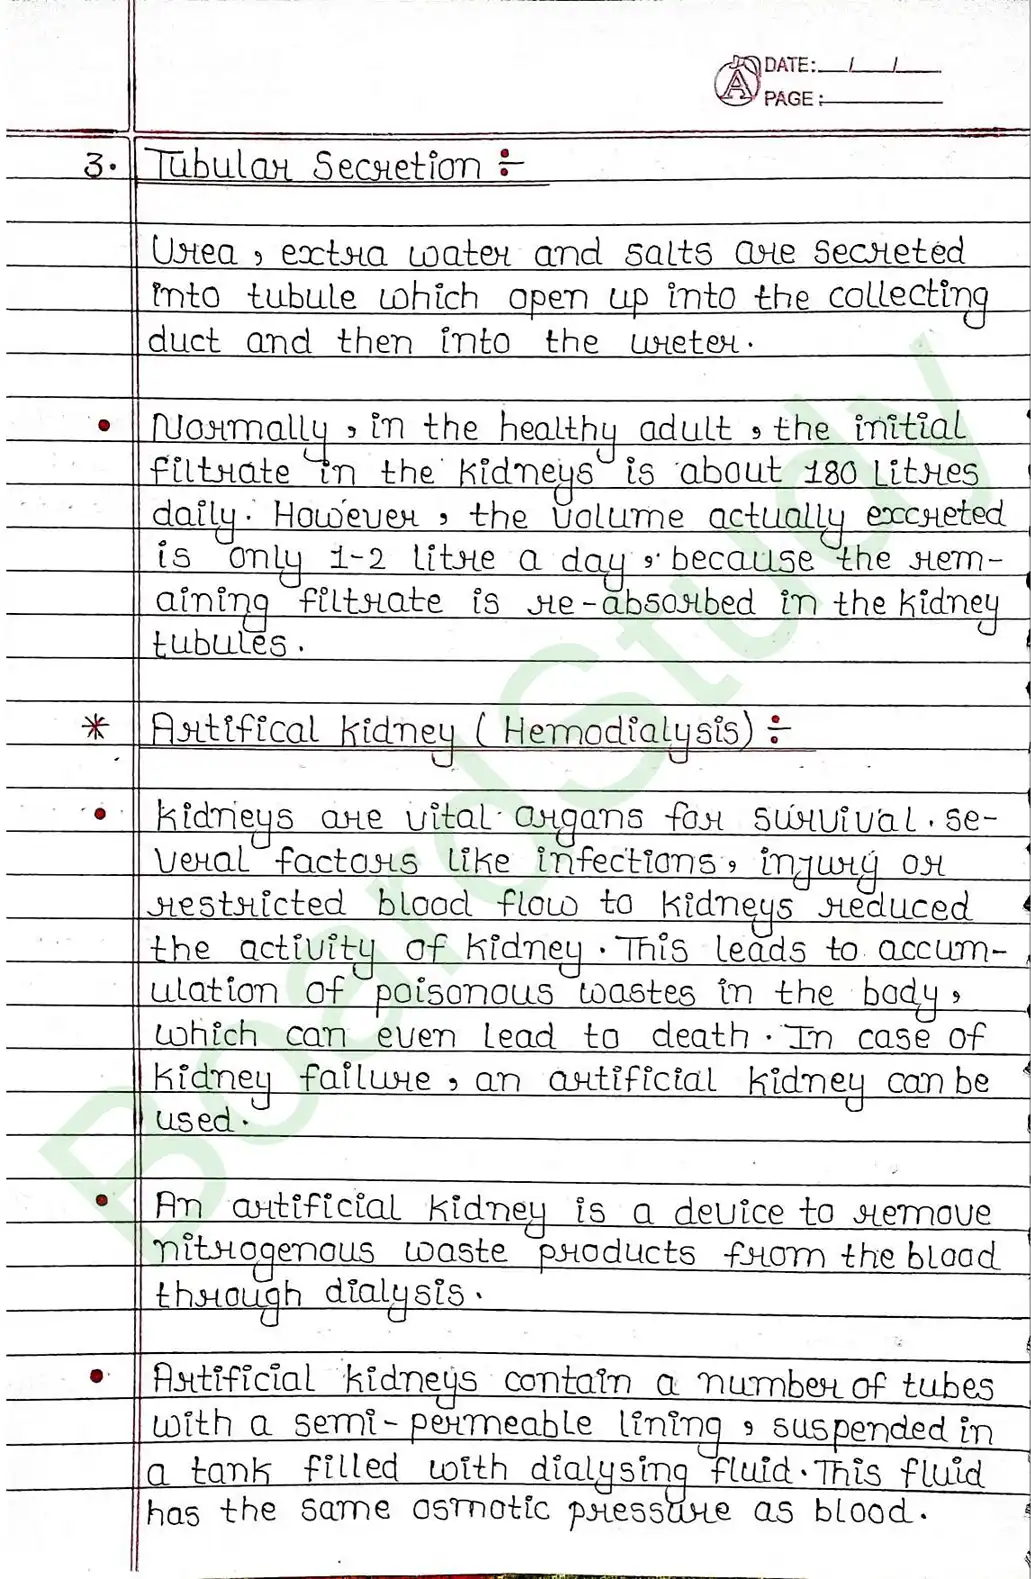 DATE: / /
PAGE:
3. Tubular Secretion :-
Urea, extra water and salts are secreted
into tubule which open up into the collecting
duct and then into the ureter.
• Normally, in the healthy adult, the initial
filtrate in the kidneys is about 180 Litres
daily. However, the volume actually excreted
is only 1-2 litre a day, because the rem-
aining filtrate is re-absorbed in the kidney
tubules.
* Artifical kidney (Hemodialysis) :-
• kidneys are vital organs for survival. se-
veral factors like infections, injury or
restricted blood flow to kidneys reduced
the activity of kidney. This leads to accum-
ulation of poisonous wastes in the body,
which can even lead to death. In case of
kidney failure, an artificial kidney can be
used.
• An artificial kidney is a device to remove
nitrogenous waste products from the blood
through dialysis.
• Artificial kidneys contain a number of tubes
with a semi-permeable lining, suspended in
a tank filled with dialysing fluid. This fluid
has the same osmotic pressure as blood.
BoardStudy